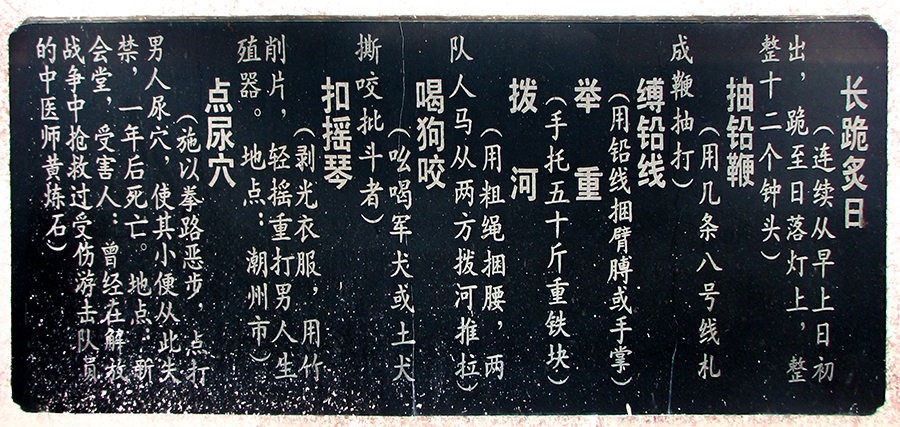 长跪炙日
（连续从早上日初
出，跪至日落灯上，整
整十二个钟头）
抽铅鞭
（用几条八号线札
成鞭抽打）
缚铅线
（用铅线捆臂膊或手掌）
举重
（手托五十斤重铁块）
拨河
（用粗绳捆腰，两
队人马从两方拨河推拉）
喝狗咬
（吆喝军犬或土犬
撕咬批斗者）
扣摇琴
（剥光衣服，用竹
削片，轻摇重打男人生
殖器。地点：潮州市）
点尿穴
（施以拳路恶步，点打
男人尿穴，使其小便从此失
禁，一年后死亡。地点：新
会堂，受害人：曾经在解放
战争中抢救过受伤游击队员
的中医师黄炼石）